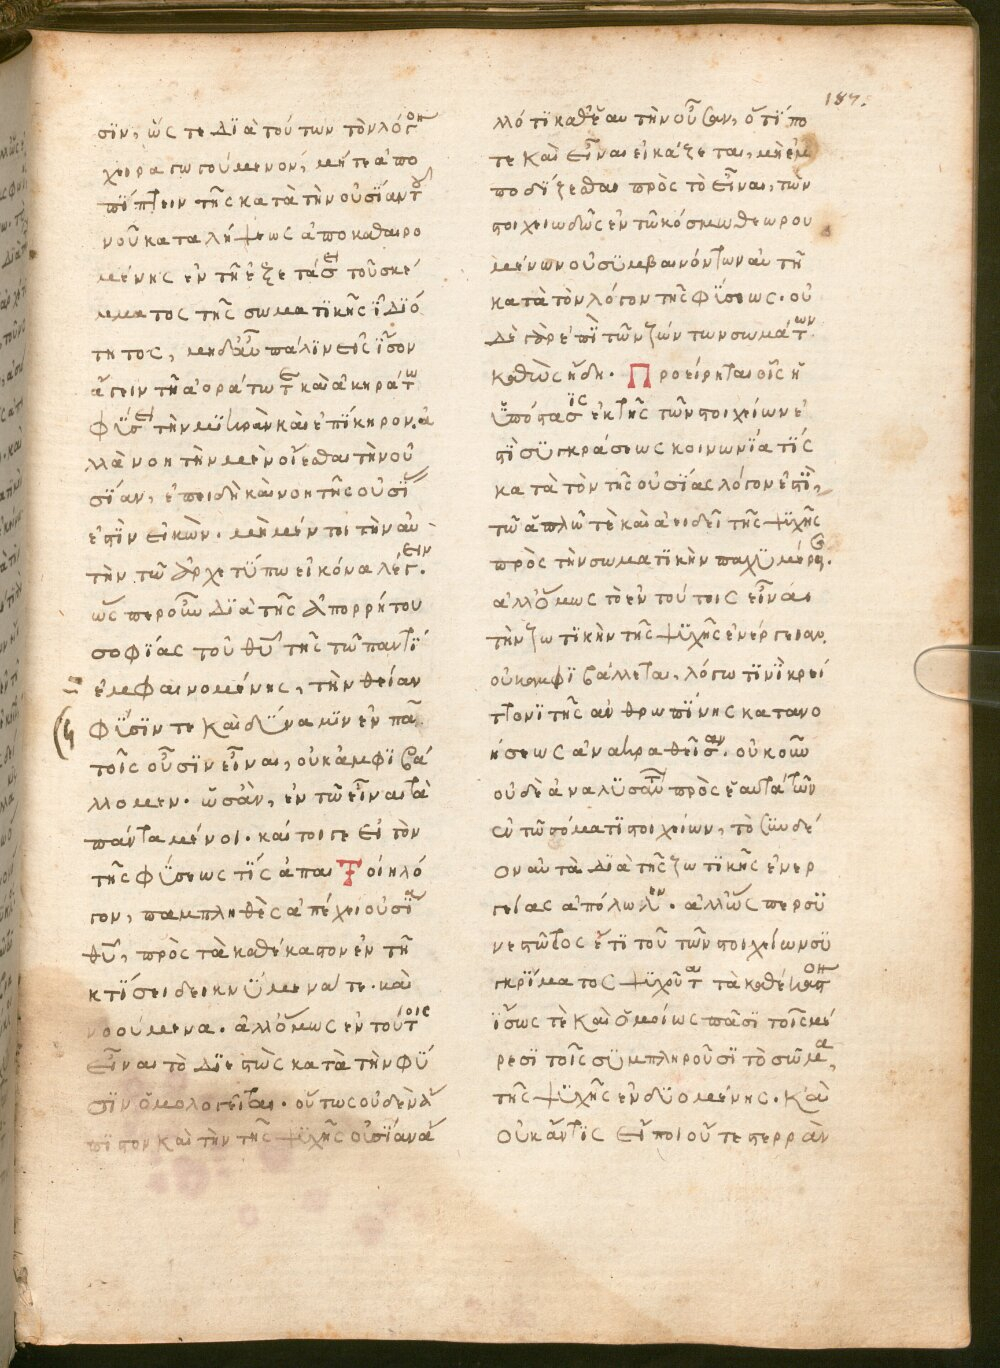 187.
σϊν, ὥς τε Δϊὰ τούτων τὸν λόγον
χειραγωγούμενον, μήτε ἀπο
πίπτειν τῆς κατὰ τὴν οὐσίαν τοῦ
νοῦ καταλήψεως ἀποκαθαιρο
μένης ἐν τῆ ἐξετάσει τοῦ σκέ
μματος τῆς σωματϊκῆς ϊδϊό
τητος, μηδ' αὖ πάλϊν εἰς ἴσον
ἄγειν τῆ ἀοράτω τὲ καὶ ἀκηράτω
φύσει τὴν μϊκρὰν καὶ ἐπίκηρον. ἀ
λλὰ νοητὴν μὲν οἴεσθαι τὴν οὐ
σίαν, ἐπειδὴ καὶ νοητῆς οὐσί
ἐστὶν εἰκών. μὴ μέν τοι τὴν αὐ
τὴν τῶ ἀρχετύπω εἰκόνα λέγειν.
ὥς περ οὖν Δϊὰ τῆς ἀπορρήτου
σοφίας τοῦ θυ τῆς τῶ παντὶ
ἐμφαινομένης, τὴν θείαν
φύσϊν τε καὶ δύναμϊν ἐν πᾶ
τοῖς οὖσϊν εἶναι, οὐκ ἀμφϊβά
λλομεν. ὡς ἂν, ἐν τῶ εἶναι τὰ
πάντα μένοι. καί τοι γε εἰ τὸν
τῆς φύσεως τὶς ἀπαιτοίη λό
γον, παμπληθὲς ἀπέχει οὐσία
θυ, πρὸς τὰ καθέκαστον ἐν τῆ
κτίσει δεικνύμενά τε. καὶ
νοούμενα. ἀλλ' ὅμως ἐν τούτοις
εἶναι τὸ Δϊεστὼς κατὰ τὴν φύ
σϊν ὁμολογεῖται. οὕτως οὐδὲν ἄ
πϊστον καὶ τὴν τῆς ψυχῆς οὐσίαν ἄ
λλό τϊ καθ' ἑαυτὴν οὖσαν, ὅτι πο
τε καὶ εἶναι εἰκάζεται, μὴ ἐμ
ποδίζεσθαι πρὸς τὸ εἶναι, τῶν
στοιχειωδῶς ἐν τῶ κόσμω θεωρου
μένων οὐ συμβαινόντων αὐτῆ
κατὰ τὸν λόγον τῆς φύσεως. οὐ
Δὲ γὰρ ἐπὶ τῶν ζώντων σωμάτων
καθὼς ἤδη. Προείρηται οἷς ἡ
ὑπόστασϊς ἐκ τῆς τῶν στοιχείων ἐ
στὶ συγκράσεως κοινωνία τίς
κατὰ τὸν τῆς οὐσίας λόγον ἐστὶ,
τῶ ἁπλῶ τὲ καὶ ἀειδεῖ τῆς ψυχῆς
πρὸς τὴν σωματϊκὴν παχυμέρει.
ἀλλ' ὅμως τὸ ἐν τούτοις εἶναι
τὴν ζωτϊκὴν τῆς ψυχῆς ἐνέργειαν.
οὐκ ἀμφϊβάλλεται, λόγω τϊνὶ κρεί
ττονϊ τῆς ἀνθρωπίνης κατανο
ήσεως ἀνακραθεῖσαν. οὐκοῦν
οὐδὲ ἀναλυσάντων πρὸς ἑαυτὰ τῶν
ἐν τῶ σώματϊ στοιχείων, τὸ συνδέ
ον αὐτὰ Δϊὰ τῆς ζωτϊκῆς ἐνερ
γείας ἀπόλωλεν. ἀλλ' ὥς περ συ
νεστῶτος ἔτϊ τοῦ τῶν στοιχείων συ
γκρίματος ψυχοῦται τὰ καθέκαστον
ἴσως τὲ καὶ ὁμοίως πᾶσϊ τοῖς μέ
ρεσϊ τοῖς συμπληροῦσϊ τὸ σῶμα,
τῆς ψυχῆς ἐνδυομένης. Καὶ
Οὐκ ἄν τὶς εἴποι οὔτε στερρὰν